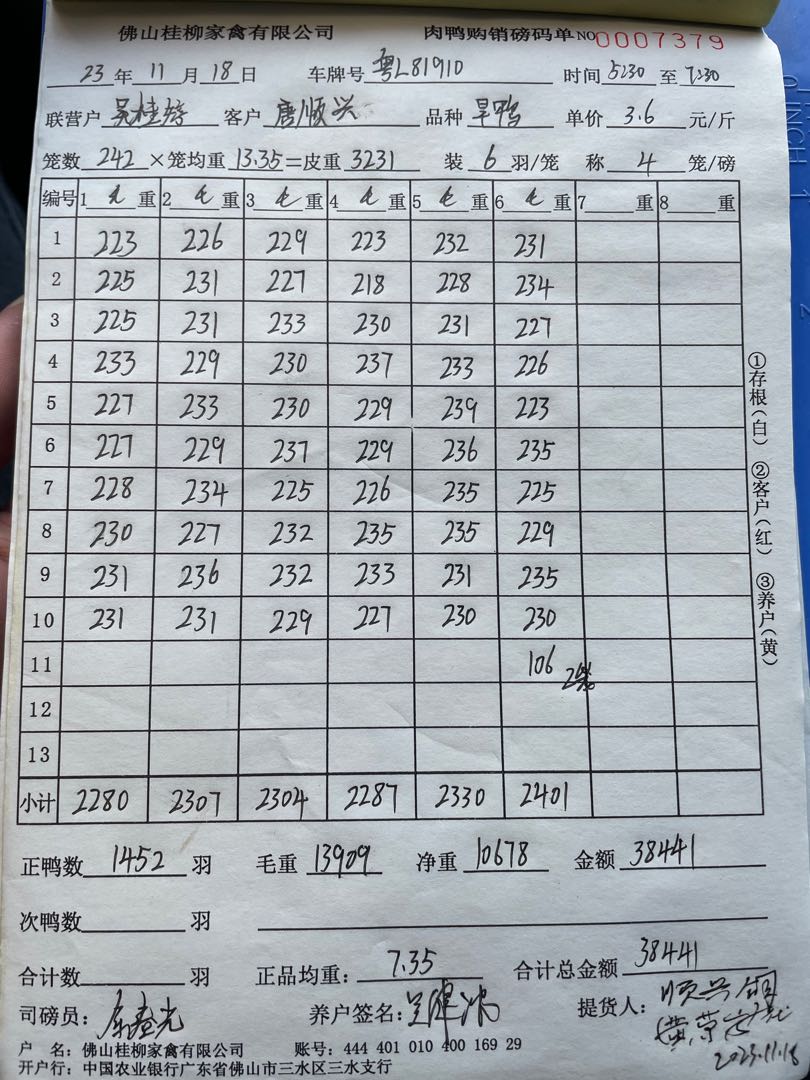 佛山桂柳家禽有限公司 肉鸭购销磅码单 NO 0007379
23 年 11 月 18 日 车牌号 粤L81910 时间 5:30 至 7:30
联营户 吴桂婷 客户 唐顺兴 品种 旱鸭 单价 3.6 元/斤
笼数 242 ×笼均重 13.35 =皮重 3231 装 6 羽/笼 称 4 笼/磅
编号 1 毛 重 2 毛 重 3 毛 重 4 毛 重 5 毛 重 6 毛 重 7 重 8 重
1 223 226 229 223 232 231
2 225 231 227 218 228 234
3 225 231 233 230 231 227
4 233 229 230 237 233 226
5 227 233 230 229 239 223
6 227 229 237 229 236 235
7 228 234 225 226 235 225
8 230 227 232 235 235 229
9 231 236 232 233 231 235
10 231 231 229 227 230 230
11 106 2笼
12
13
小计 2280 2307 2304 2287 2330 2401
①存根(白) ②客户(红) ③养户(黄)
正鸭数 1452 羽 毛重 13909 净重 10678 金额 38441
次鸭数 羽
合计数 羽 正品均重: 7.35 合计总金额 38441
司磅员: 养户签名: 提货人: 顺兴
2023.11.18
户 名: 佛山桂柳家禽有限公司 账号: 444 401 010 400 169 29
开户行: 中国农业银行广东省佛山市三水区三水支行